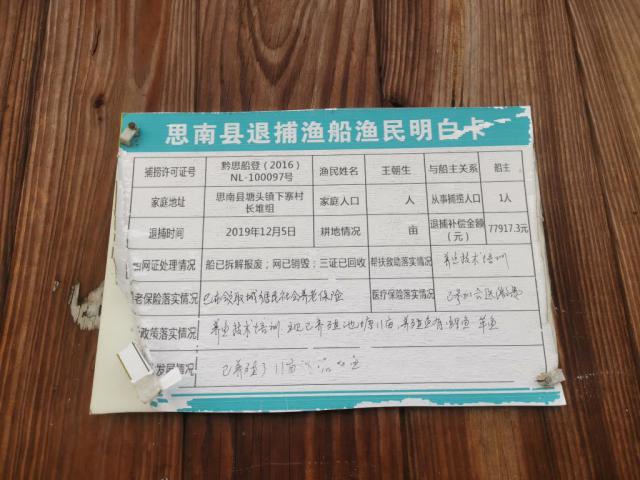 思南县退捕渔船渔民明白卡
捕捞许可证号 黔思船登（2016）NL-100097号 渔民姓名 王朝生 与船主关系 船主
家庭地址 思南县塘头镇下寨村长堆组 家庭人口 人 从事捕捞人口 1人
退捕时间 2019年12月5日 耕地情况 亩 退捕补偿金额（元） 77917.3元
网证处理情况 船已拆解报废；网已销毁；三证已回收 帮扶救助落实情况 养鱼技术培训
老保险落实情况 已领取城乡居民社会养老保险 医疗保险落实情况 已参加
政策落实情况 养鱼技术培训 现已养殖池塘11亩 养殖鱼有:鲤鱼 草鱼
发展情况 已养殖了11亩 鱼